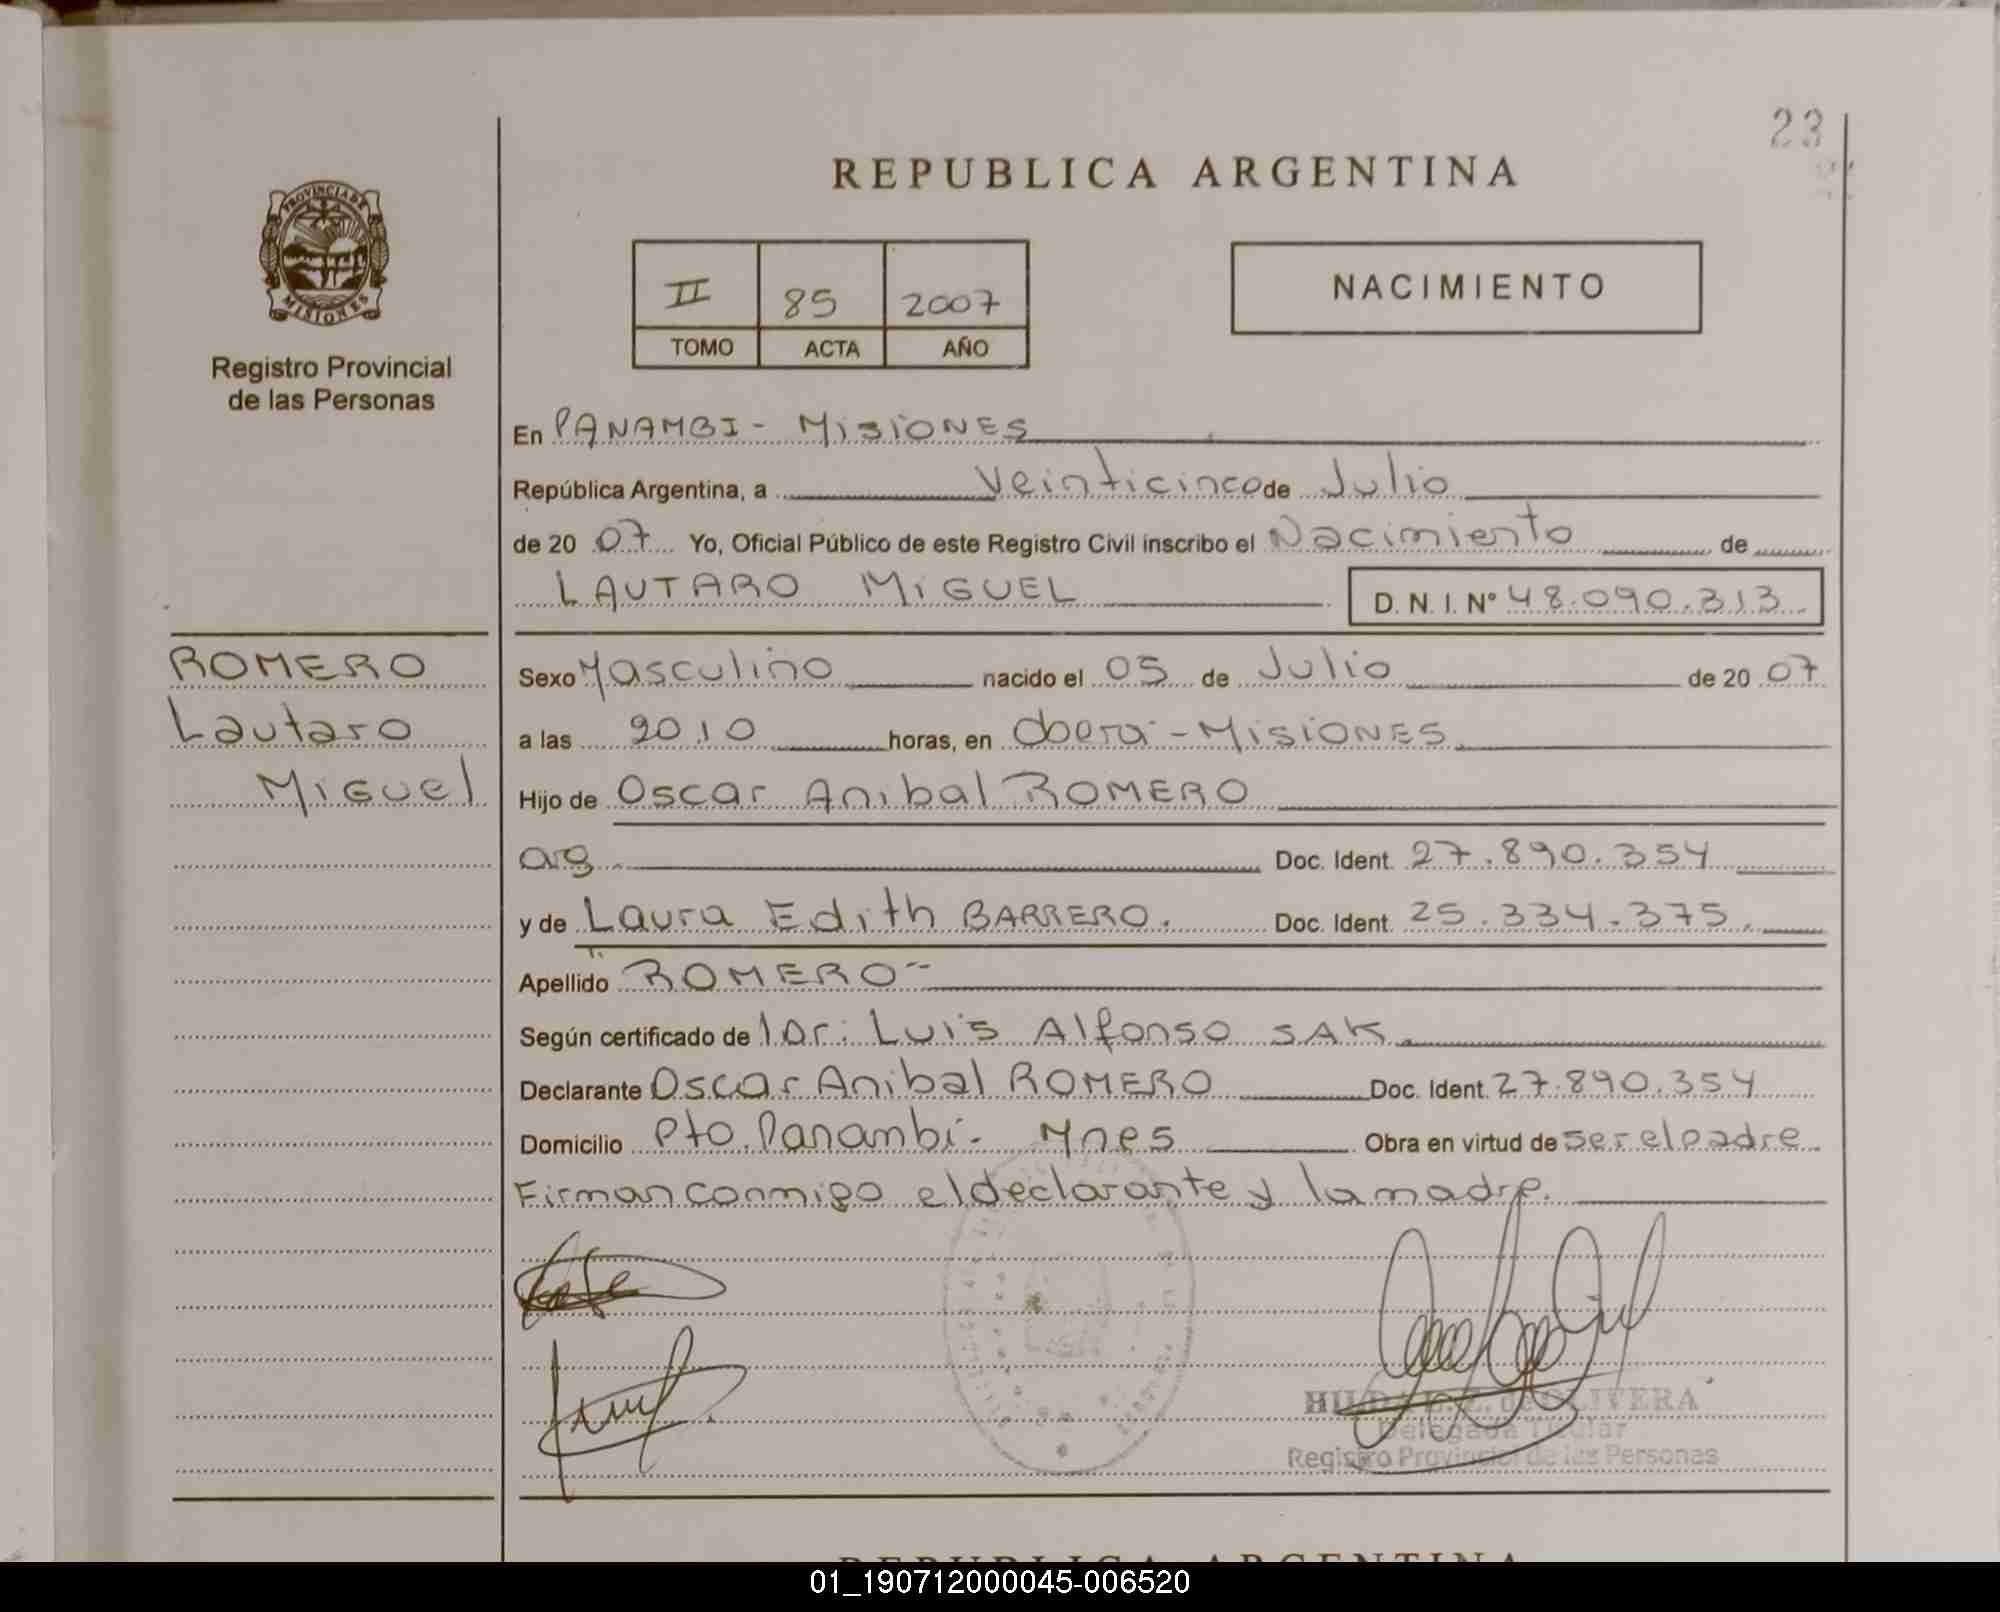 23
REPUBLICA ARGENTINA
PROVINCIA DE
MISIONES
Registro Provincial
de las Personas
II 85 2007
TOMO ACTA AÑO
NACIMIENTO
En PANAMBI - MISIONES
República Argentina, a Veinticinco de Julio
de 20 07 Yo, Oficial Público de este Registro Civil inscribo el Nacimiento de
LAUTARO MIGUEL D. N. I. Nº 48.090.313
ROMERO
Lautaro
MIGUEL
Sexo Masculino nacido el 05 de Julio de 20 07
a las 20.10 horas, en Oberá - MISIONES
Hijo de Oscar Anibal ROMERO
arg. Doc. Ident. 27.890.354
y de Laura Edith BARRERO. Doc. Ident. 25.334.375.
Apellido ROMERO -
Según certificado de Luis Alfonso SAK.
Declarante Oscar Anibal ROMERO Doc. Ident. 27.890.354
Domicilio Pto. Panambi - Mnes Obra en virtud de ser el padre
Firman conmigo el declarante y la madre.
OLIVERA
Delegada Titular
Registro Provincial de las Personas
REPUBLICA ARGENTINA
01_190712000045-006520